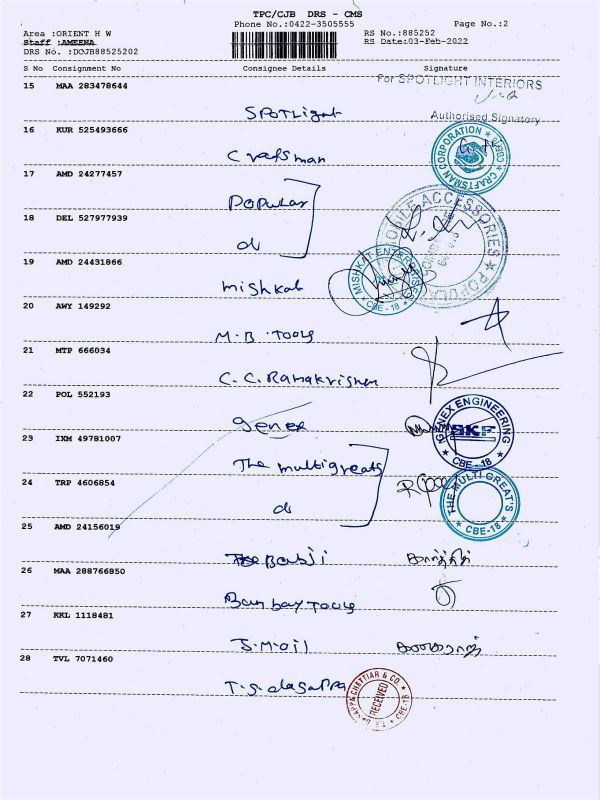 TPC/CJB DRS - CMS
Phone No.:0422-3505555 Page No.:2
Area :ORIENT H W RS No.:885252
Staff :AMEENA RS Date:03-Feb-2022
DRS No. :DCJB88525202
S No Consignment No Consignee Details Signature
15 MAA 283478644 For SPOTLIGHT INTERIORS
Spotlight Authorised Signatory
16 KUR 525493666
Crafsman CRAFTSMAN CORPORATION
17 AMD 24277457
Popular MOBILE ACCESSORIES POPULAR
18 DEL 527977939
do
19 AMD 24431866
mishkat MISHKAT ENTERPRISES CBE - 18
20 AWY 149292
M.B. Tools
21 MTP 666034
C.C. Ramakrishnan
22 POL 552193
genex IGINEX ENGINEERING SKF CBE - 18
23 IXM 49781007
The multigreats
24 TRP 4606854
do THE MULTI GREAT'S CBE-18
25 AMD 24156019
Babji கார்த்தி
26 MAA 288766850
Bombay Tools
27 KKL 1118481
J.M.oil
28 TVL 7071460
T.S. alagappa CHETTIAR & CO. RECEIVED CBE-18